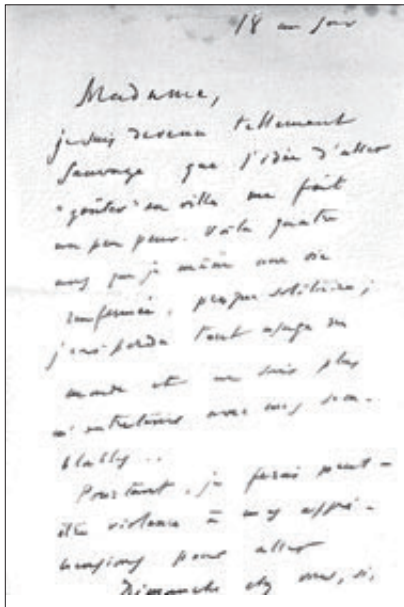 18 au soir
Madame,
je suis devenu tellement
sauvage que l'idée d'aller
"goûter" en ville me fait
un peu peur. Voilà quatre
ans que je mène une vie
renfermée, presque solitaire ;
j'ai perdu tout usage du
monde et ne sais plus
m'entretenir avec mes sem-
blables..
Pourtant, je ferais peut-
être violence à mes appré-
hensions pour aller
Dimanche chez vous, si,